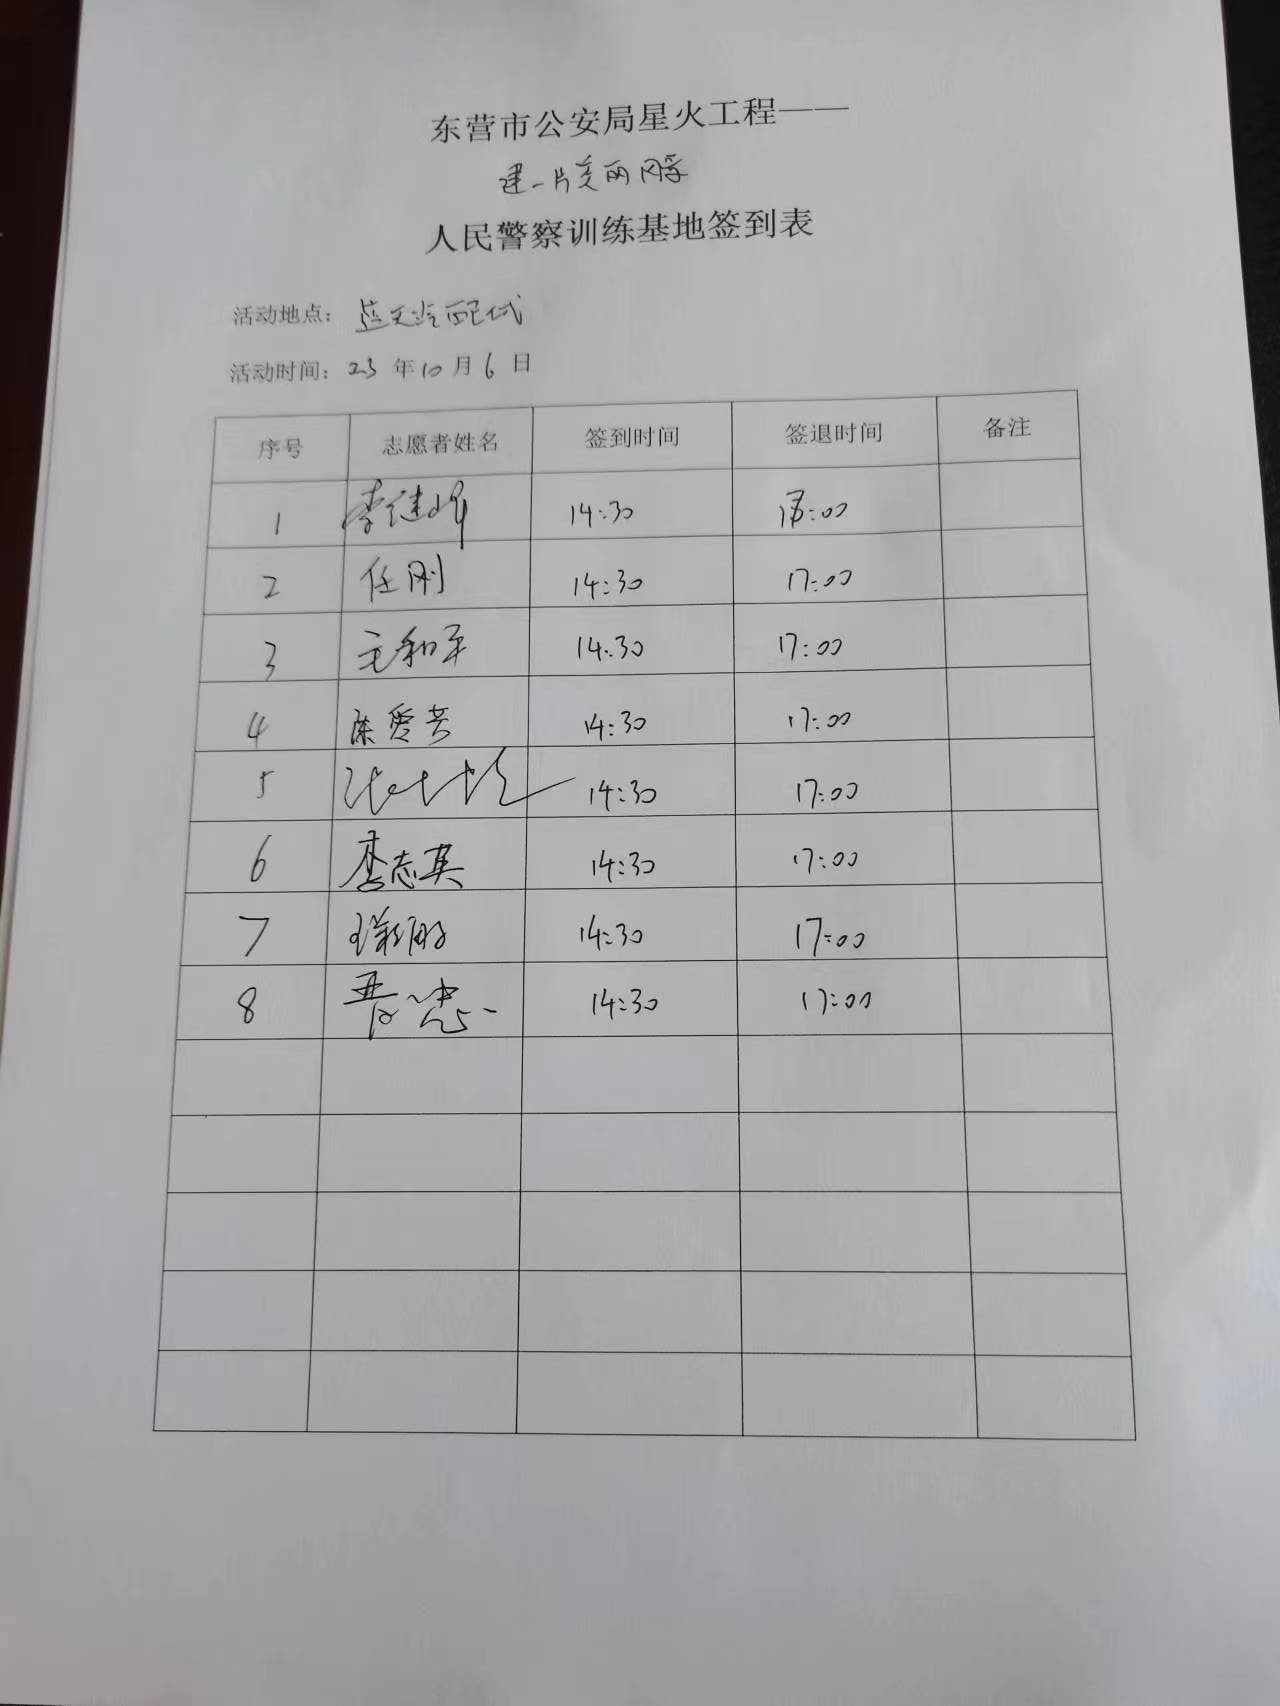 东营市公安局星火工程——
建一片美丽网
人民警察训练基地签到表
活动地点：蓝天汽配
活动时间：23年10月6日
序号 志愿者姓名 签到时间 签退时间 备注
1 李继峰 14:30 :00
2 任刚 14:30 17:00
3 王和平 14:30 17:00
4 陈爱芳 14:30 17:00
5 14:30 17:00
6 李志英 14:30 17:00
7 14:30 17:00
8 14:30 17:00